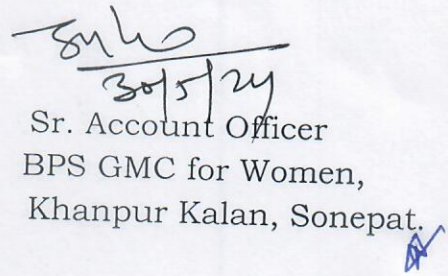 30/5/24
Sr. Account Officer
BPS GMC for Women,
Khanpur Kalan, Sonepat.